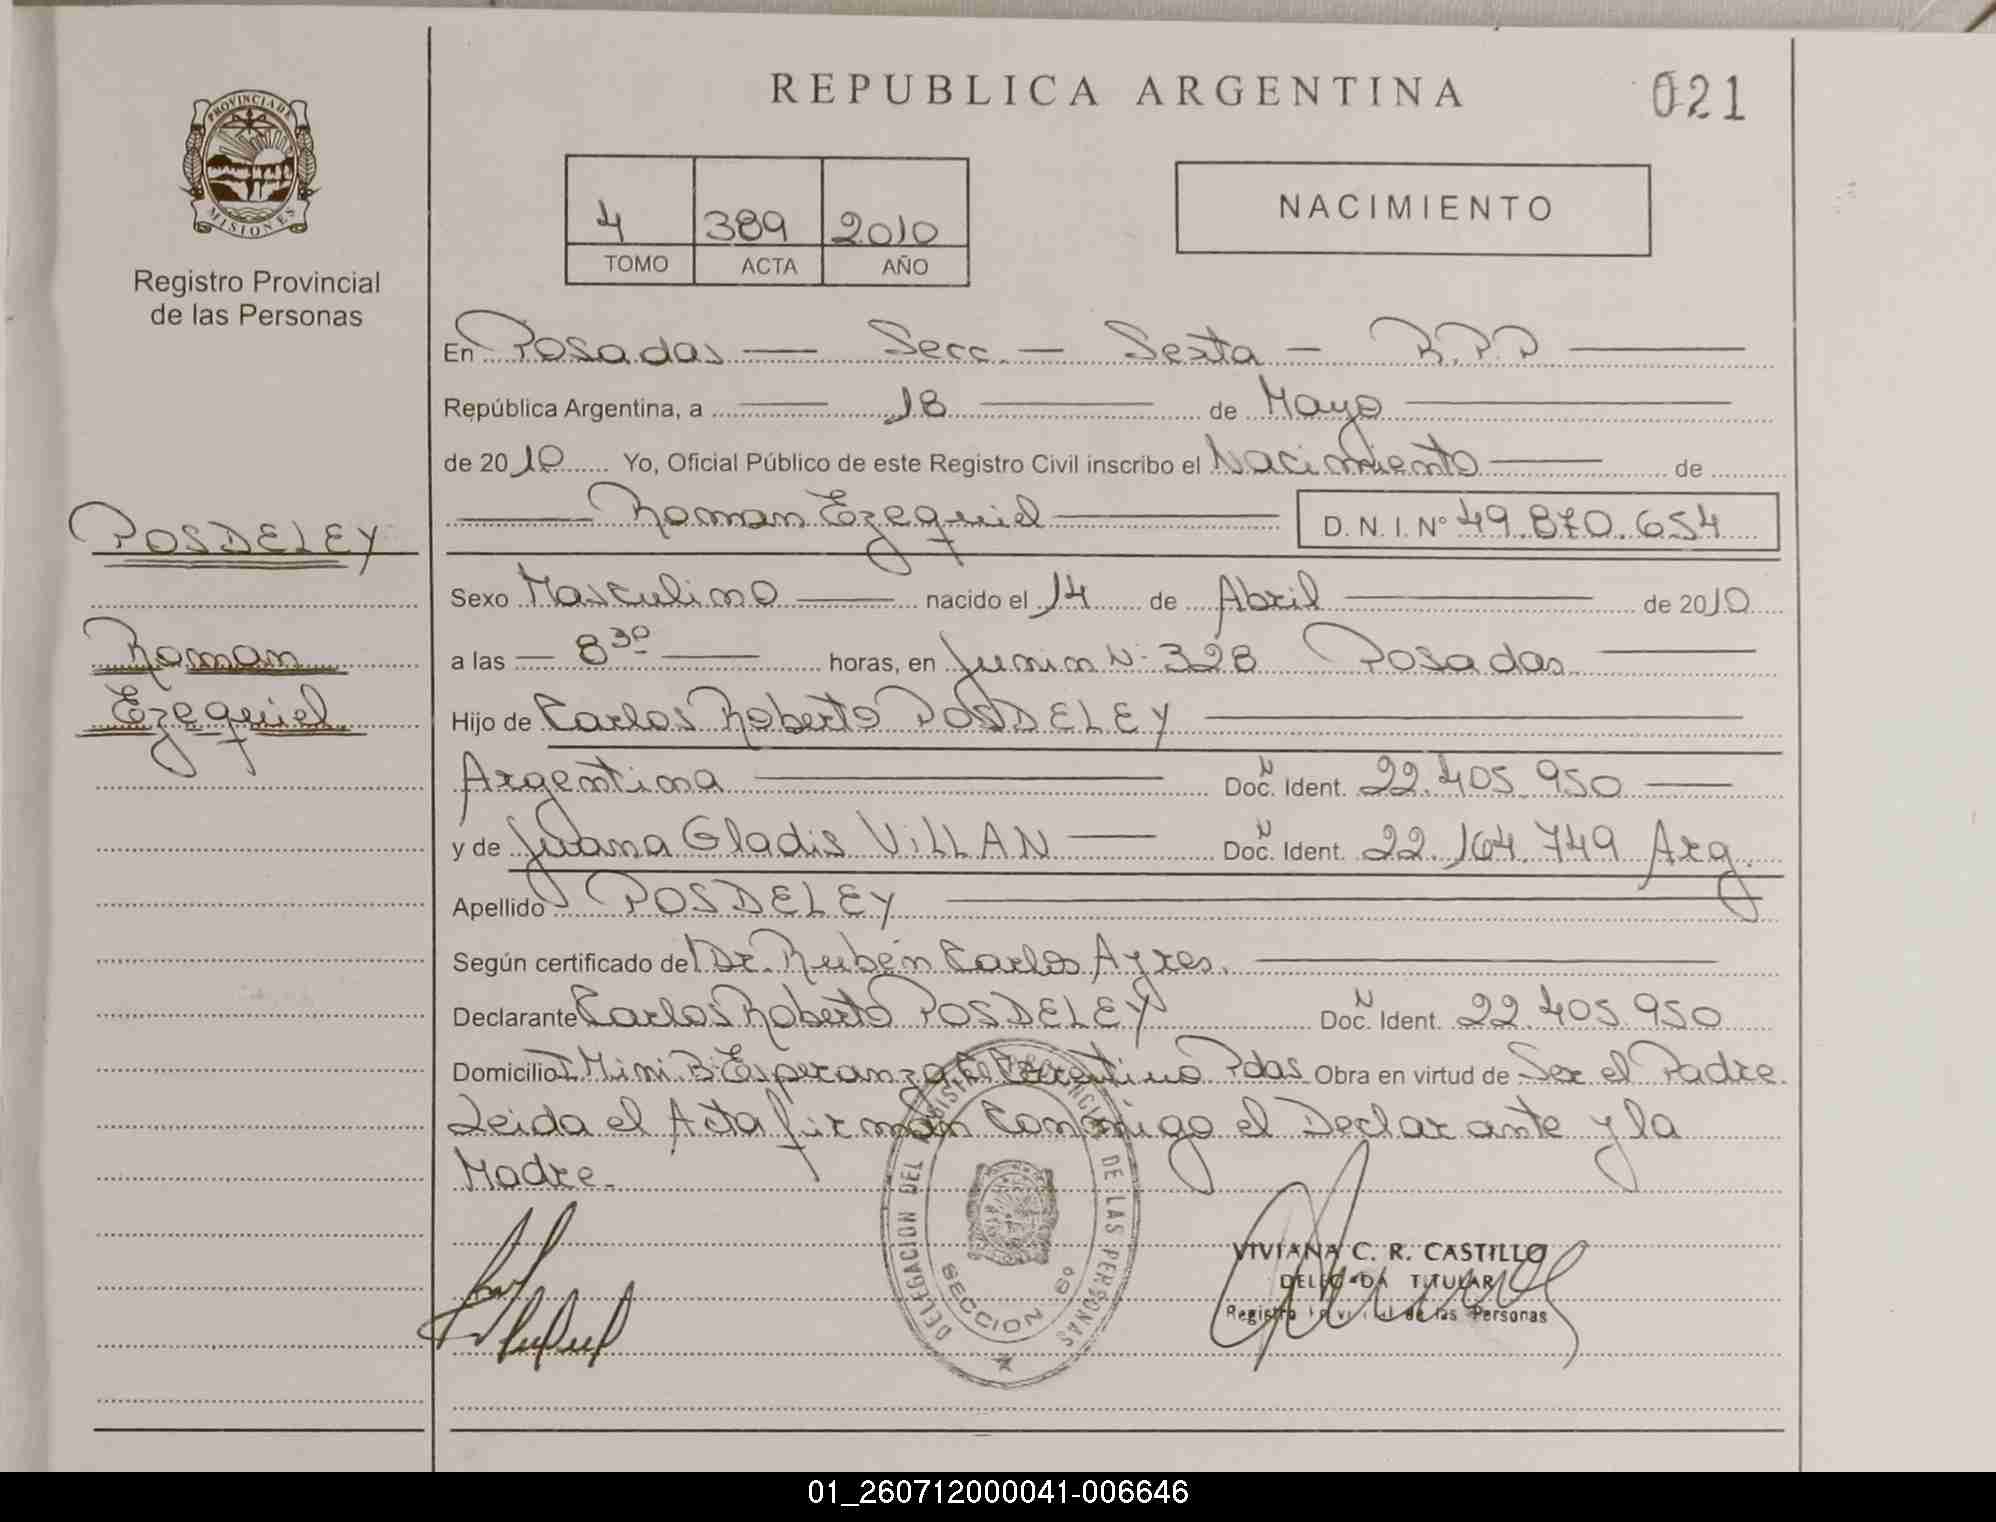 REPUBLICA ARGENTINA
021
PROVINCIA DE
MISIONES
Registro Provincial
de las Personas
4 389 2010
TOMO ACTA AÑO
NACIMIENTO
En Posadas — Secc. — Sexta — R.P.P —
República Argentina, a — 18 — de Mayo —
de 2010 Yo, Oficial Público de este Registro Civil inscribo el Nacimiento — de
— Roman Ezequiel — D. N. I. Nº 49.870.654
POSDELEY
Roman
Ezequiel
Sexo Masculino — nacido el 14 de Abril — de 2010
a las — 8 30 — horas, en Junin N. 328 Posadas —
Hijo de Carlos Roberto POSDELEY —
Argentina — Doc. N Ident. 22.405.950 —
y de Juana Gladis ViLLAN — Doc. N Ident. 22.164.749 Arg.
Apellido POSDELEY —
Según certificado del Dr. Rubén Carlos Ayres. —
Declarante Carlos Roberto POSDELEY Doc. N Ident. 22.405.950
Domicilio I Mini B: Esperanza Pdas Obra en virtud de Ser el Padre.
Leida el Acta firman Conmigo el Declarante y la
Madre.
DELEGACION DEL DE LAS PERSONAS
SECCION 6º
VIVIANA C. R. CASTILLO
DELEGADA TITULAR
Registro Provincial de las Personas
01_260712000041-006646